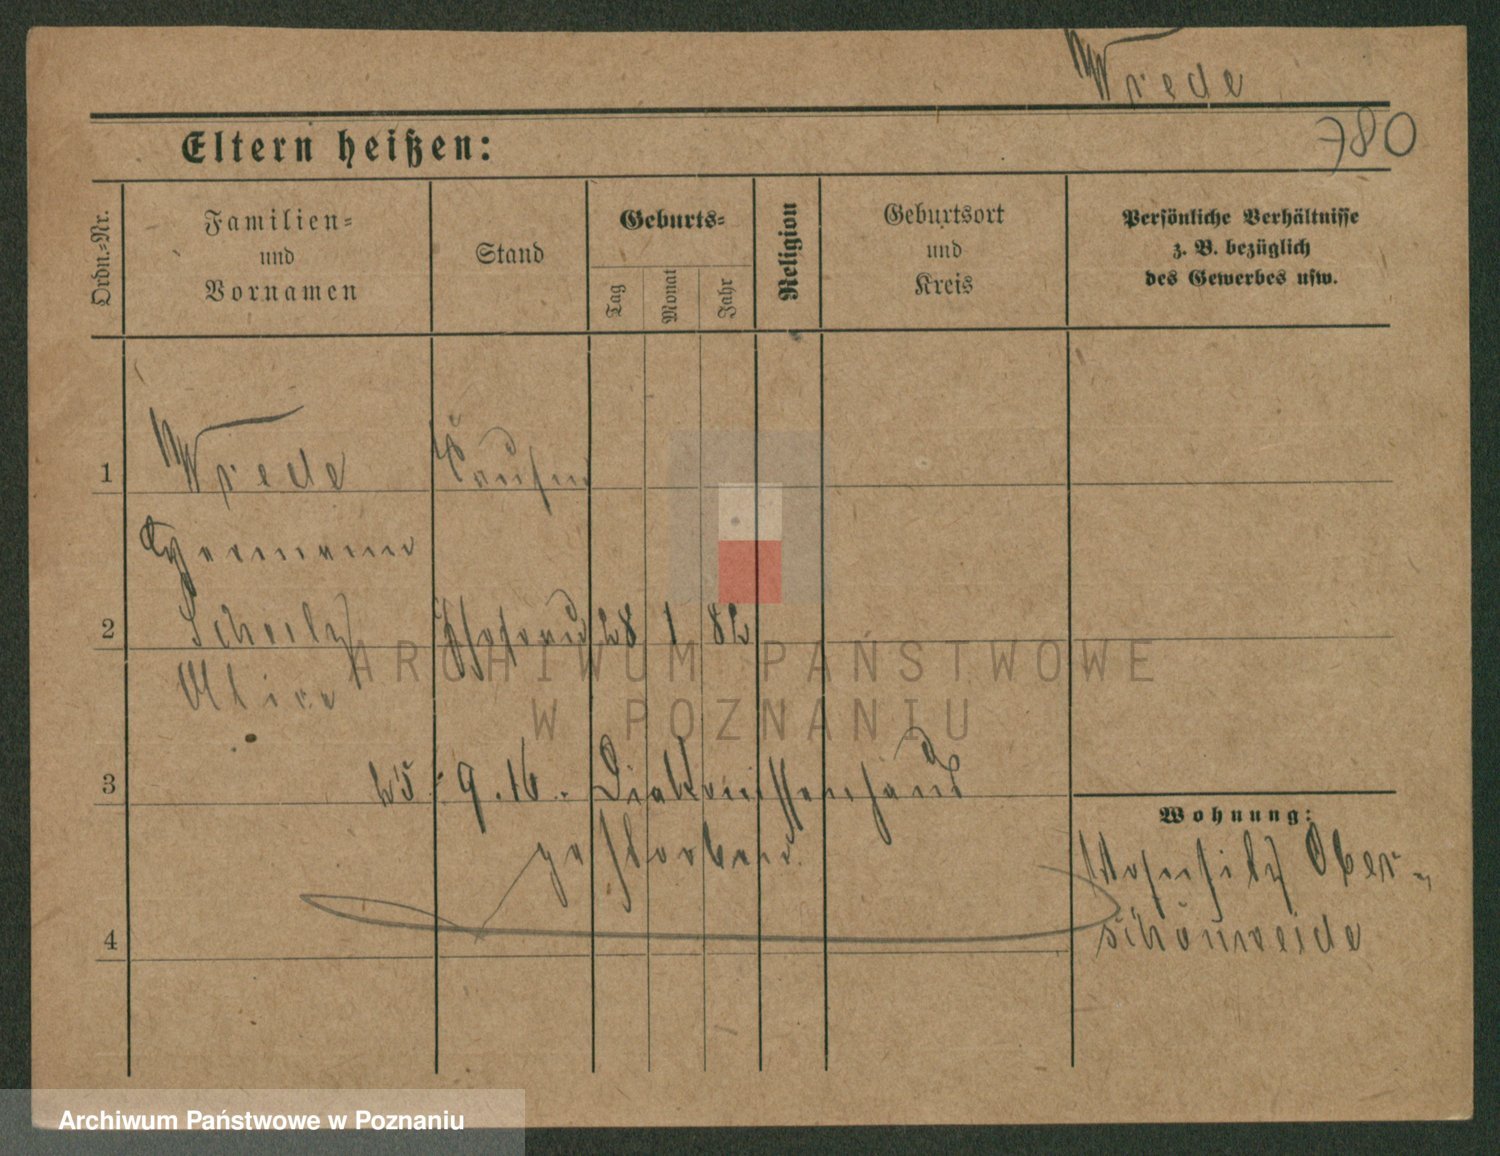 Wrede
780
Eltern heißen:
Ordn.-Nr.
Familien-
und
Vornamen
Stand
Geburts-
Tag
Monat
Jahr
Religion
Geburtsort
und
Kreis
Persönliche Verhältnisse
z. B. bezüglich
des Gewerbes usw.
1
Wrede
Kaufm
Hermann
2
Scholz
Ehefrau
28
1
82
ARCHIWUM PAŃSTWOWE
W POZNANIU
3
25. 9. 16. Diakonissenhaus
gestorben
Wohnung:
Wohnsitz Ober-
schöneweide
4
Archiwum Państwowe w Poznaniu